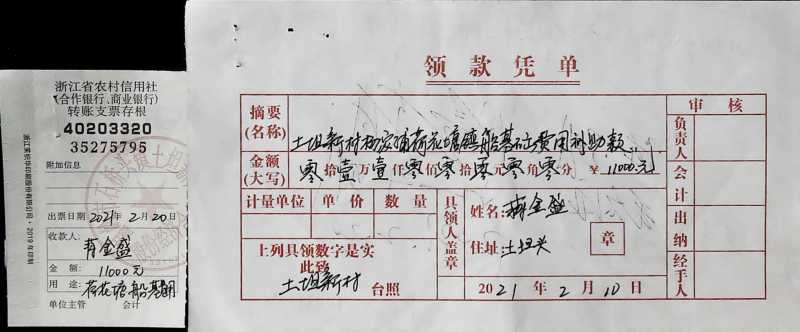 浙江省农村信用社
(合作银行、商业银行)
转账支票存根
40203320
35275795
附加信息
出票日期 2021年 2月 20日
收款人:
金盛
金 额: 11000元
用 途: 荷花塘船基
单位主管 会计
领 款 凭 单
摘要
(名称)
土坦新村 荷花塘镇船基 费用补助款
金额
(大写)
零拾壹万壹仟零佰零拾零元零角零分 ¥ 11000元
计量单位 单 价 数 量
上列具领数字是实
此致
土坦新村 台照
具领人盖章
姓名: 金盛
住址: 土坦头
章
2021 年 2 月 10 日
审 核
负责人
会计
出纳
经手人